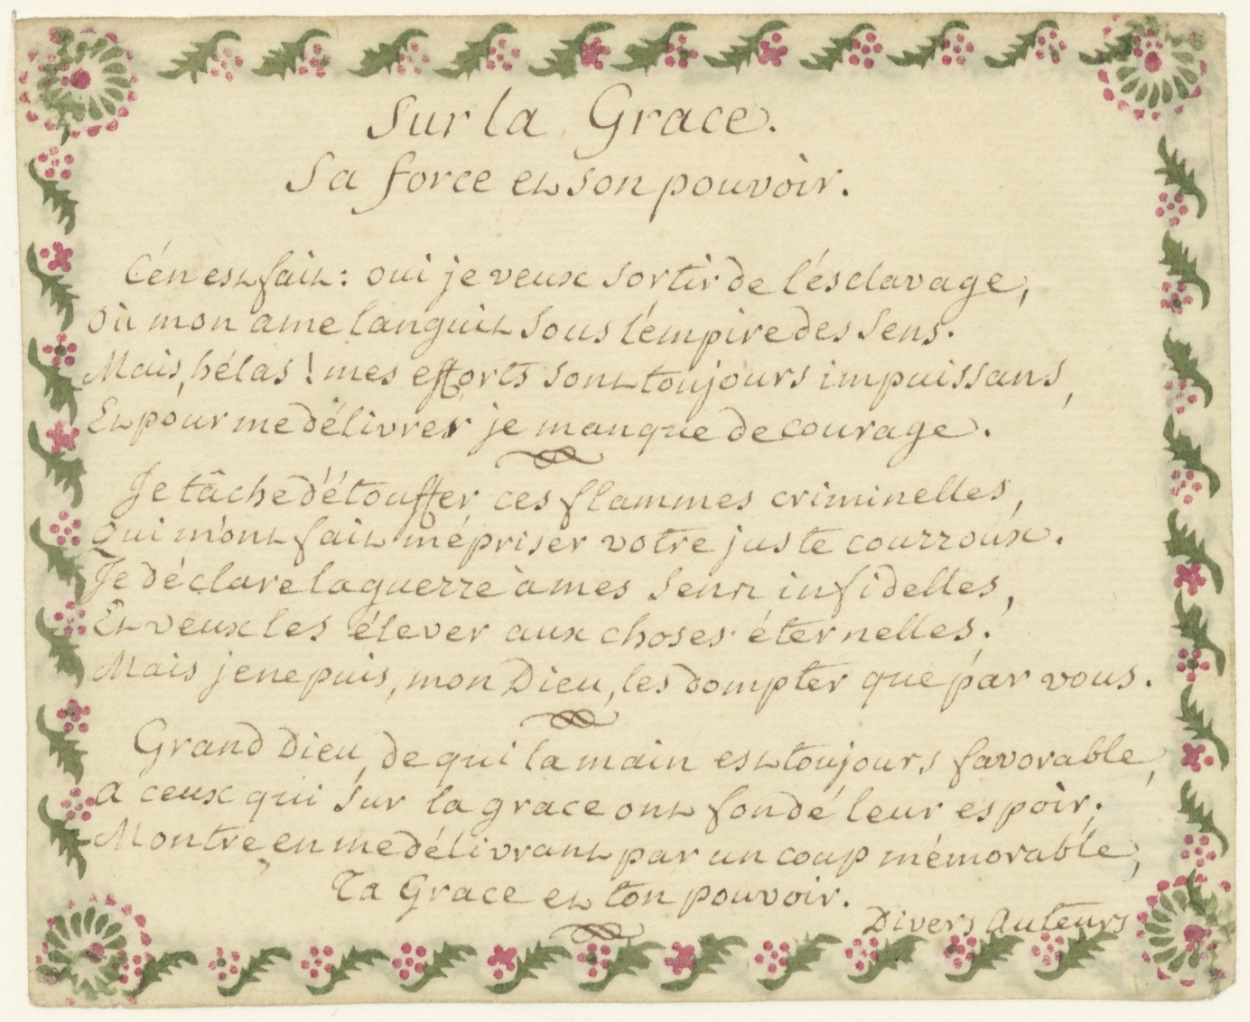 Sur la Grace.
Sa force et son pouvoir.
C'én est fait : oui je veux sortir de l'ésclavage,
Où mon ame languit sous l'émpire des sens.
Mais, hélas ! mes efforts sont toujours impuissans,
Et pour me délivrer je manque de courage.
Je tâche d'étouffer ces flammes criminelles,
Qui m'ont fait mépriser votre juste courroux.
Je déclare la guerre à mes sens infidelles,
Et veux les élever aux choses éternelles.
Mais je ne puis, mon Dieu, les dompter que par vous.
Grand Dieu, de qui la main est toujours favorable,
A ceux qui sur la grace ont fondé leur espoir;
Montre, en me délivrant par un coup mémorable,
Ta Grace et ton pouvoir.
Divers Auteurs